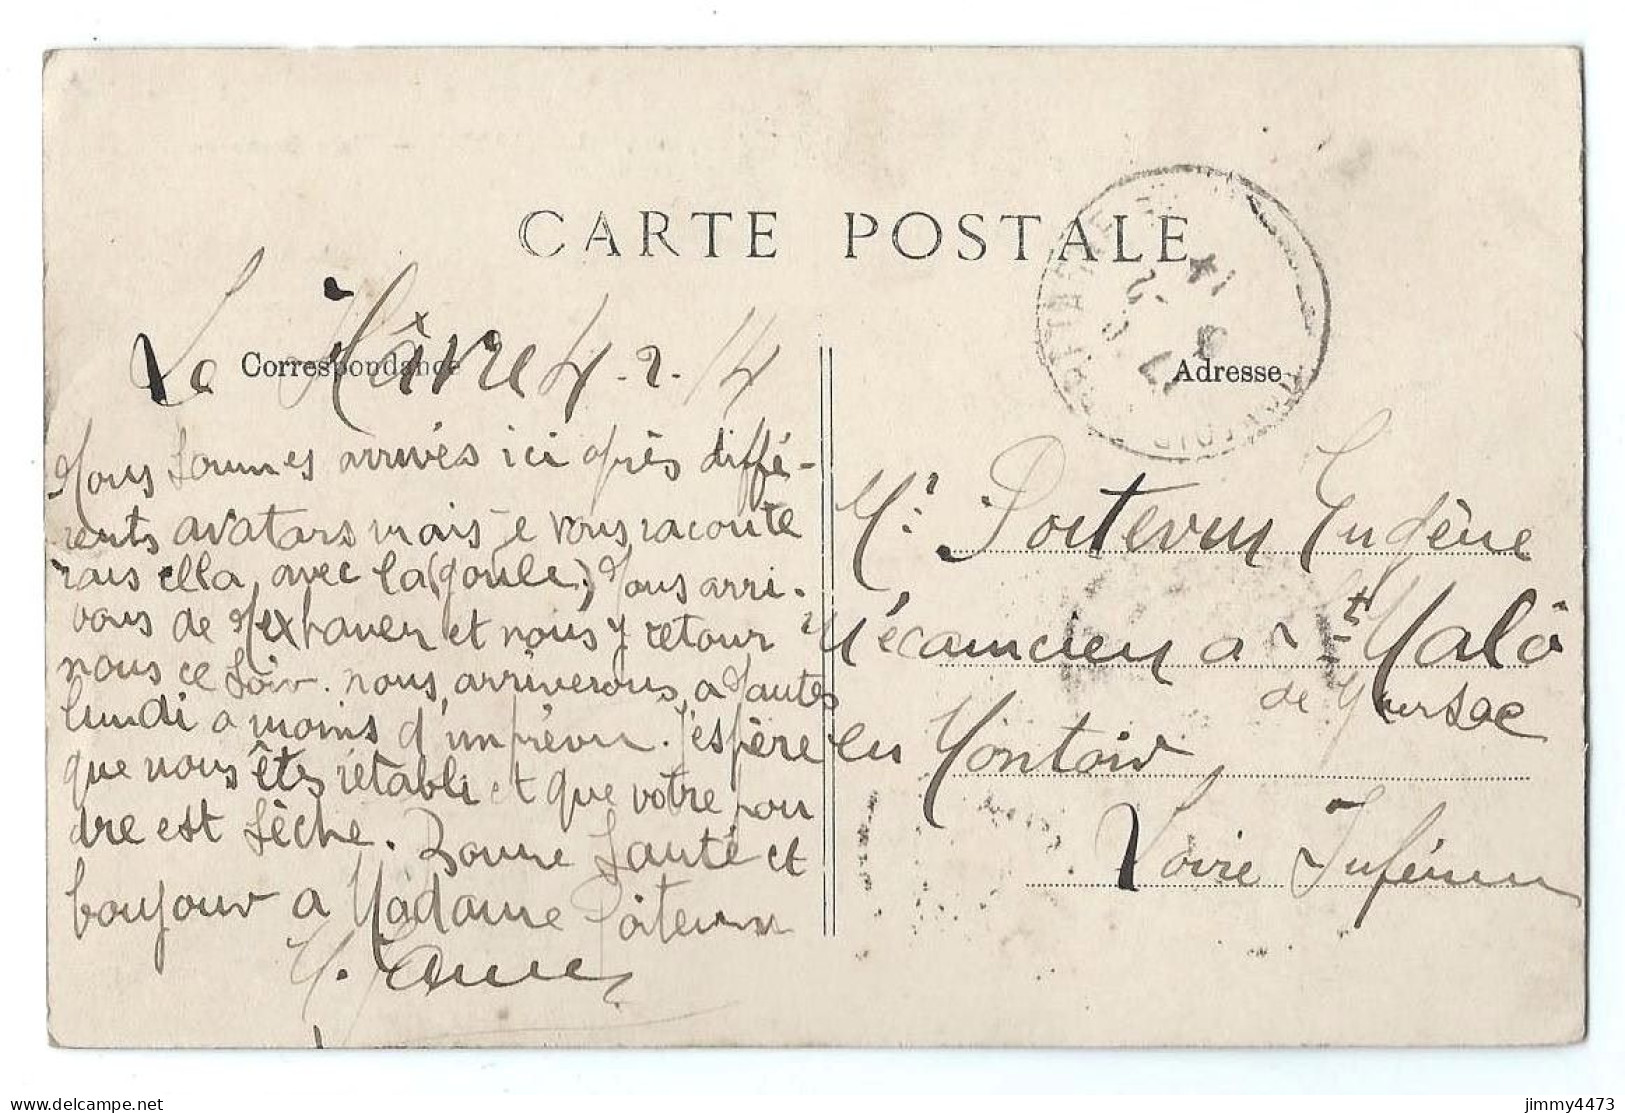 CARTE POSTALE
Correspondance
Adresse
Le Hâvre 4.2.14
Nous sommes arrivés ici après diffé-
rents avatars mais je vous raconte
rais ella avec la (goule,) Nous arri-
vons de et nous y retour
nous ce soir. nous arriverons a Nantes
lundi a moins d'imprévu. j'espère
que vous êtes rétabli et que votre pou
dre est sèche. Bonne Santé et
bonjour a Madame Poitevin
Mr. Poitevin Eugène
Mécanicien a St Malô
de Guersac
en Montoir
Loire Inférieure
jimmy4473